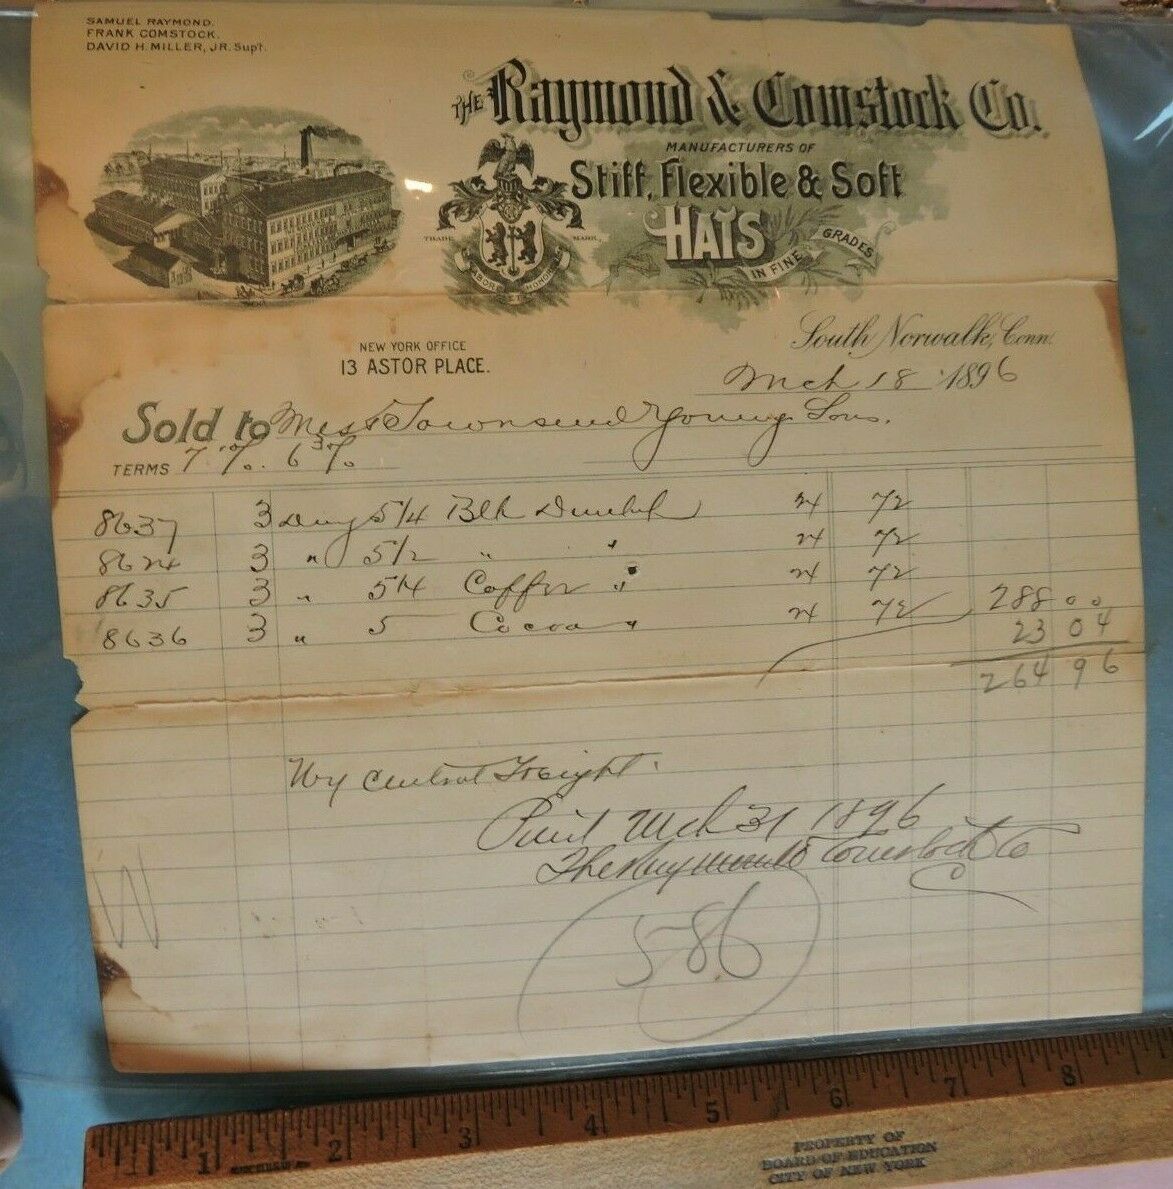 SAMUEL RAYMOND.
FRANK COMSTOCK.
DAVID H. MILLER, JR. Sup't.
THE Raymond & Comstock Co.
MANUFACTURERS OF
Stiff, Flexible & Soft
HATS
IN FINE GRADES
TRADE MARK.
NEW YORK OFFICE
13 ASTOR PLACE.
South Norwalk, Conn.
Mch 18 1896
Sold to Mess Townsend Young Sons.
TERMS 7 % 6 3%
8637 3 5/4 Blk 24 72
8624 3 " 5 1/2 " " 24 72
8635 3 " 5/4 Coffee " 24 72 288 00
8636 3 " 5 Cocoa " 24 72 23 04
264 96
NY Central Freight.
Paid Mch 31 1896
The Raymond Comstock Co
586
1 2 3 4 5 6 7 8
PROPERTY OF
BOARD OF EDUCATION
CITY OF NEW YORK